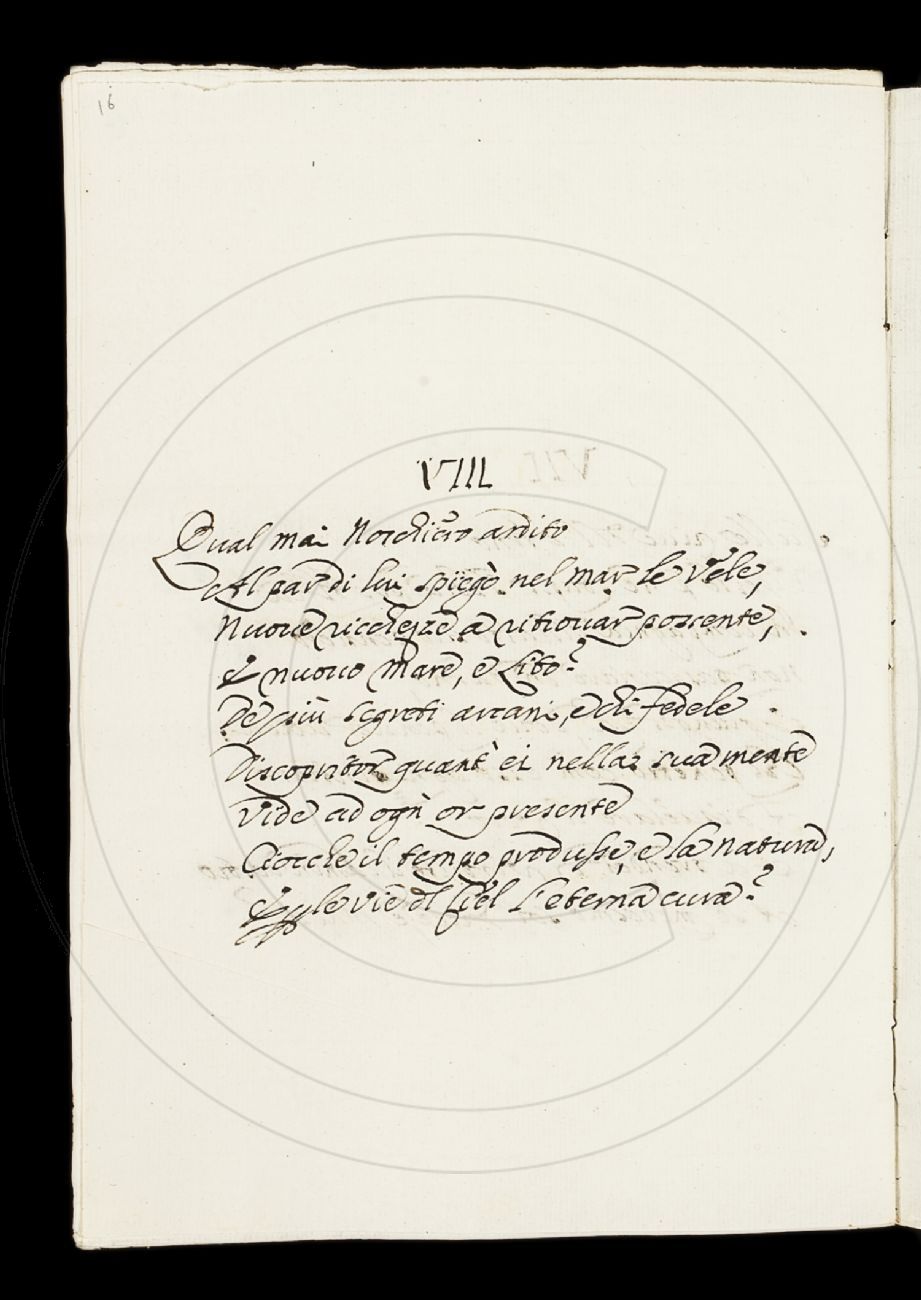 16
VIII
Qual mai Nocchiero ardito
Al par di lui spiegò nel mar le Vele,
Nuove ricchezze a ritrovar possente,
E nuovo Mare, e Lito?
De più segreti arcani, e chi fedele
Discopritor quant' ei nella sua mente
Vide ad ogn' or presente
Ciocche il tempo produsse, e la Natura,
E le vie del Ciel l'eterna cura?